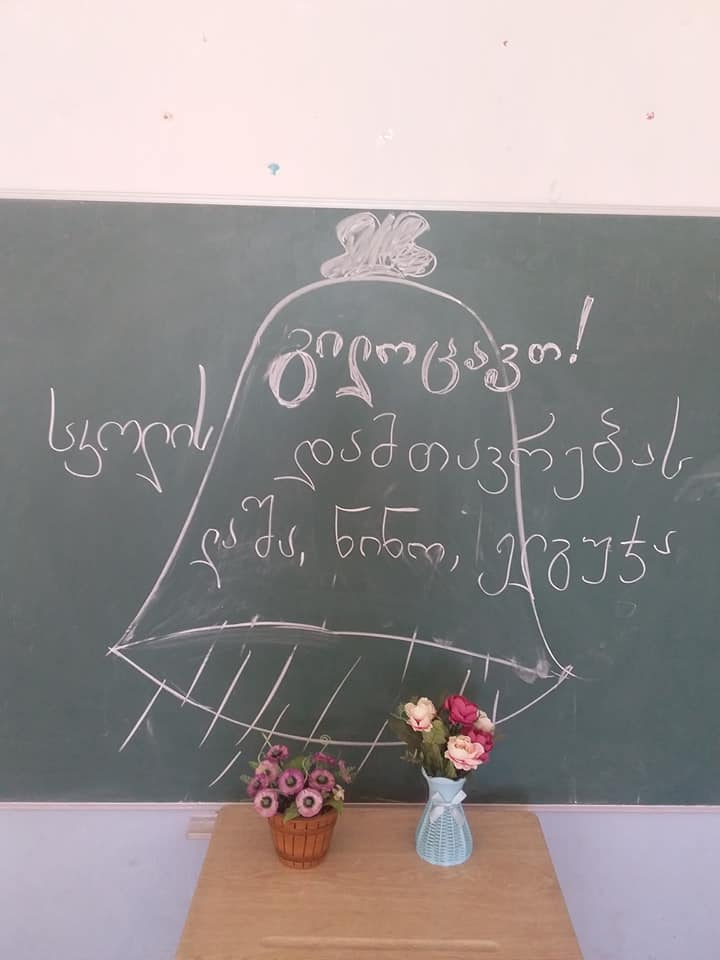 გილოცავთ!
სკოლის დამთავრებას
ლაშა, ნინო, ელგუჯა